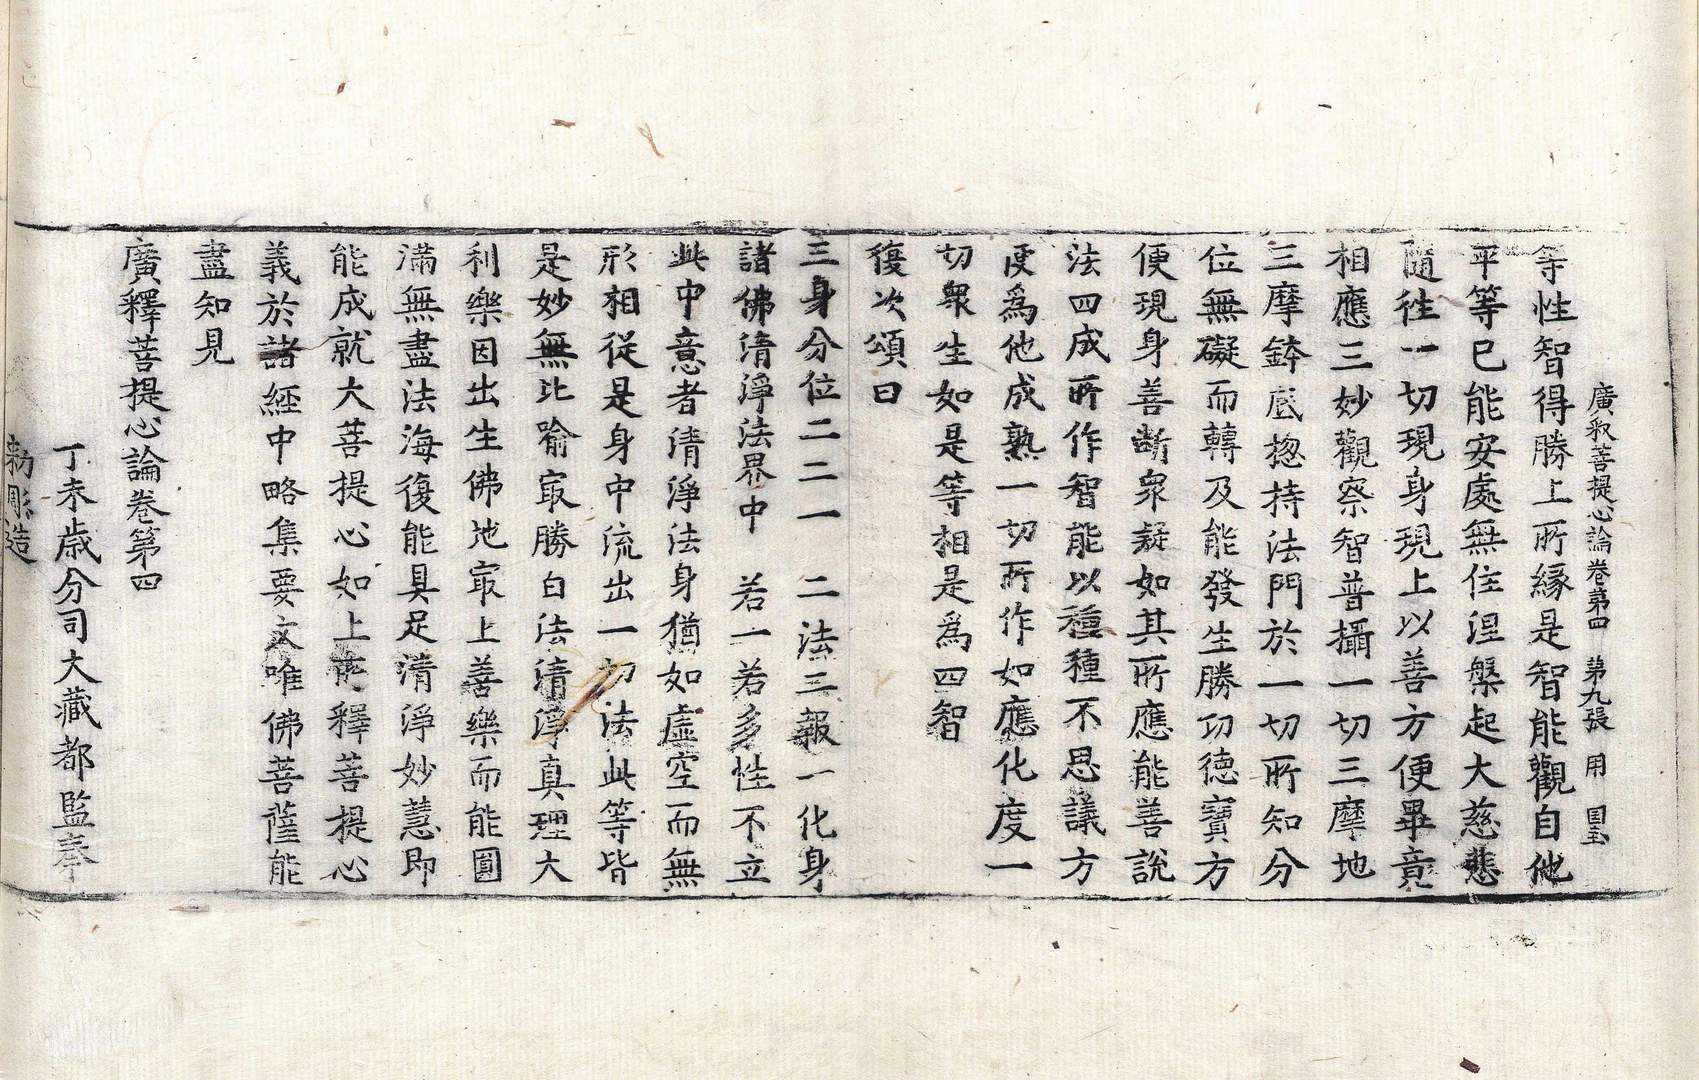 廣釈菩提心論卷第四 第九張 用 国玉
等性智得勝上所縁是智能觀自他
平等已能安處無住涅槃起大慈悲
隨徃一切現身現上以善方便畢竟
相應三妙觀察智普攝一切三摩地
三摩鉢底揔持法門於一切所知分
位無礙而轉及能發生勝功德寶方
便現身善断衆疑如其所應能善說
法四成所作智能以種種不思議方
便爲他成熟一切所作如應化度一
切衆生如是等相是爲四智
復次頌曰
三身分位二二一 二法三報一化身
諸佛清淨法界中 若一若多性不立
此中意者清淨法身猶如虛空而無
形相從是身中流出一切法此等皆
是妙無比喻冣勝白法清淨真理大
利樂因出生佛地冣上善樂而能圓
滿無盡法海復能具足清淨妙慧即
能成就大菩提心如上廣釋菩提心
義於諸經中略集要文唯佛菩薩能
盡知見
廣釋菩提心論卷第四
丁未歲分司大藏都監奉
勑彫造